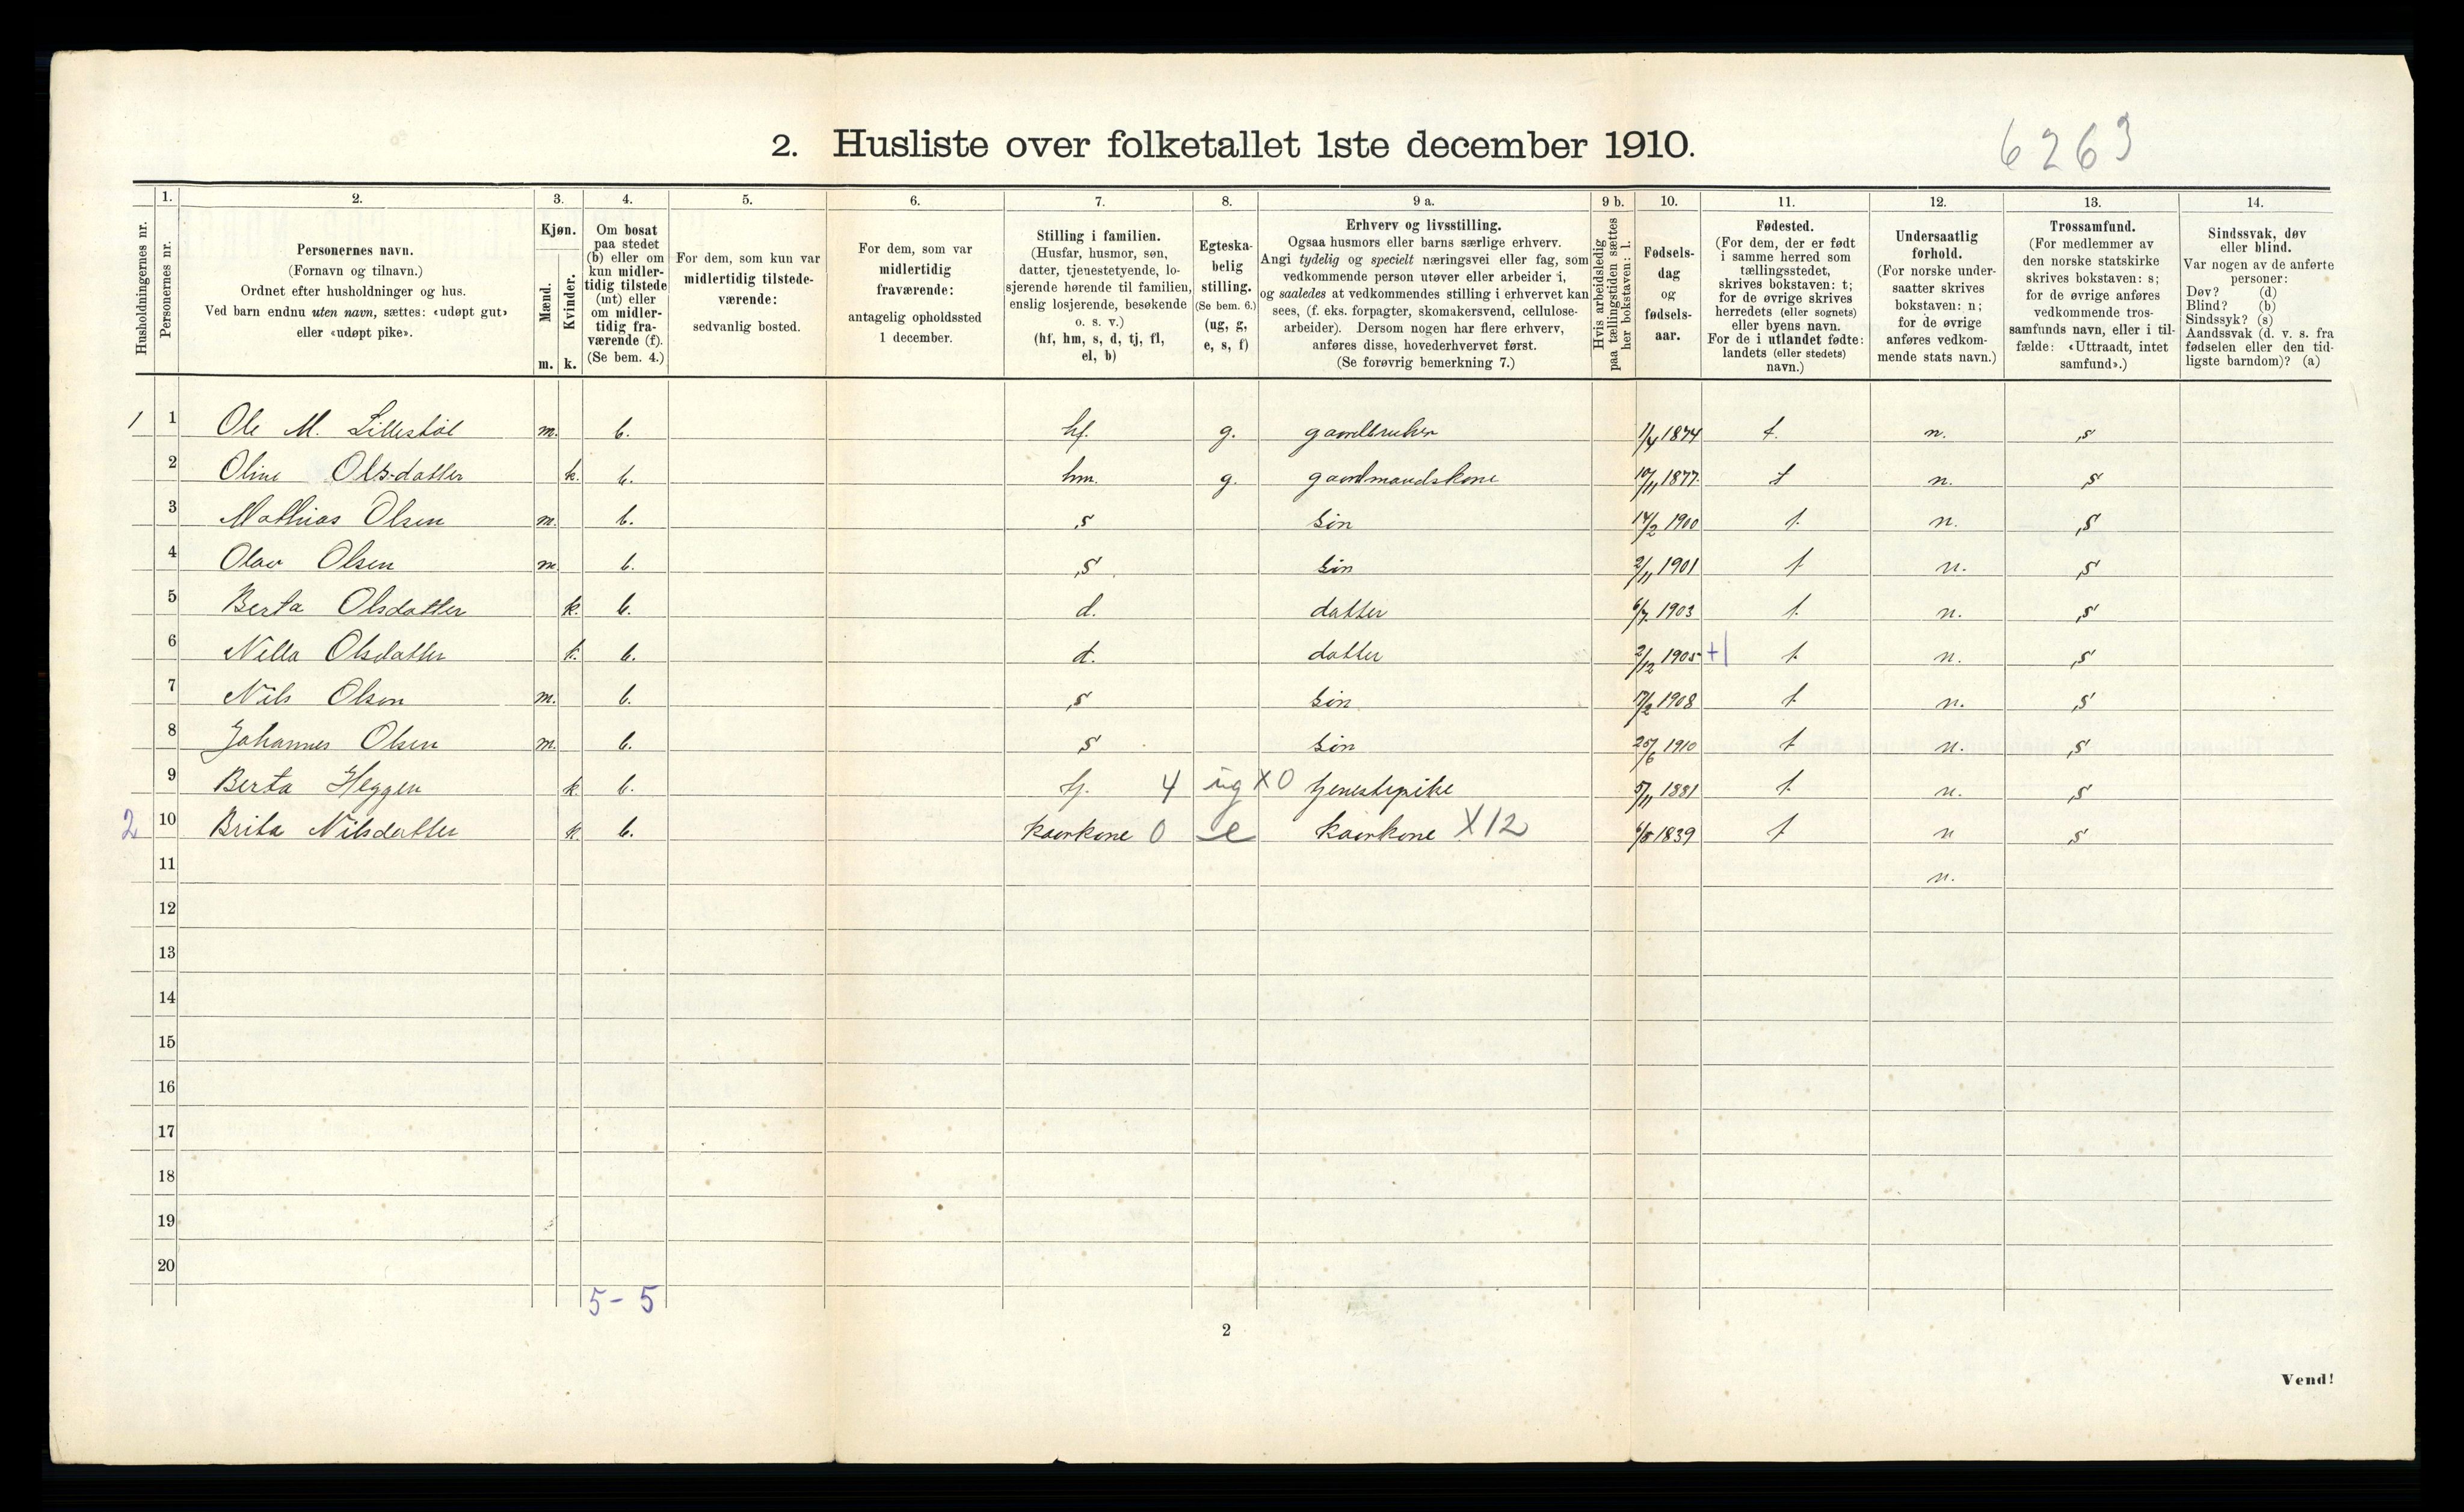 6263
2. Husliste over folketallet 1ste december 1910.
Husholdningernes nr.
1.
Personernes nr.
2.
Personernes navn.
(Fornavn og tilnavn.)
Ordnet efter husholdninger og hus.
Ved barn endnu uten navn, sættes: «udøpt gut»
eller «udøpt pike».
3.
Kjøn.
Mænd.
Kvinder.
m. k.
4.
Om bosat
paa stedet
(b) eller om
kun midler-
tidig tilstede
(mt) eller
om midler-
tidig fra-
værende (f).
(Se bem. 4.)
5.
For dem, som kun var
midlertidig tilstede-
værende:
sedvanlig bosted.
6.
For dem, som var
midlertidig
fraværende:
antagelig opholdssted
1 december.
7.
Stilling i familien.
(Husfar, husmor, søn,
datter, tjenestetyende, lo-
sjerende hørende til familien,
enslig losjerende, besøkende
o. s. v.)
(hf, hm, s, d, tj, fl,
el, b)
8.
Egteska-
belig
stilling.
(Se bem. 6.)
(ug, g,
e, s, f)
9 a.
Erhverv og livsstilling.
Ogsaa husmors eller barns særlige erhverv.
Angi tydelig og specielt næringsvei eller fag, som
vedkommende person utøver eller arbeider i,
og saaledes at vedkommendes stilling i erhvervet kan
sees, (f. eks. forpagter, skomakersvend, cellulose-
arbeider). Dersom nogen har flere erhverv,
anføres disse, hovederhvervet først.
(Se forøvrig bemerkning 7.)
9 b.
Hvis arbeidsledig
paa tællingstiden sættes
her bokstaven: l.
10.
Fødsels-
dag
og
fødsels-
aar.
11.
Fødested.
(For dem, der er født
i samme herred som
tællingsstedet,
skrives bokstaven: t;
for de øvrige skrives
herredets (eller sognets)
eller byens navn.
For de i utlandet fødte:
landets (eller stedets)
navn.)
12.
Undersaatlig
forhold.
(For norske under-
saatter skrives
bokstaven: n;
for de øvrige
anføres vedkom-
mende stats navn.)
13.
Trossamfund.
(For medlemmer av
den norske statskirke
skrives bokstaven: s;
for de øvrige anføres
vedkommende tros-
samfunds navn, eller i til-
fælde: «Uttraadt, intet
samfund».)
14.
Sindssvak, døv
eller blind.
Var nogen av de anførte
personer:
Døv? (d)
Blind? (b)
Sindssyk? (s)
Aandssvak (d. v. s. fra
fødselen eller den tid-
ligste barndom)? (a)
1 1 Ole M. Lillestöl m. b. hf. g. gaardbruker 11/4 1874 t. n. s
2 Oline Olsdatter k. b. hm. g. gaardmandskone 10/11 1877. t n. s
3 Mathias Olsen m. b. s sön 14/2 1900 t. n. s
4 Olav Olsen m. b. s sön 2/11 1901 t n. s
5 Berta Olsdatter k. b. d. datter 6/7. 1903 t. n. s
6 Nella Olsdatter k. b. d. datter 2/12 1905 +1 t. n. s
7 Nils Olsen m. b. s sön 1908 t. n. s
8 Johannes Olsen m. b. s sön 25/6 1910 t n. s
9 Berta Heggen k. b. tj. 4 ug X0 tjenestepike 5/11 1881 t. n. s
2 10 Brita Nilsdatter k. b. kaarkone 0 e kaarkone X12 6/8 1839 t n s
11 n.
12
13
14
15
16
17
18
19
20
5 - 5
2
Vend!